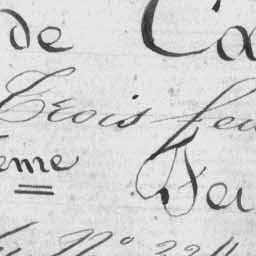 de Ca
Trois feu
ème Feu
N° 22